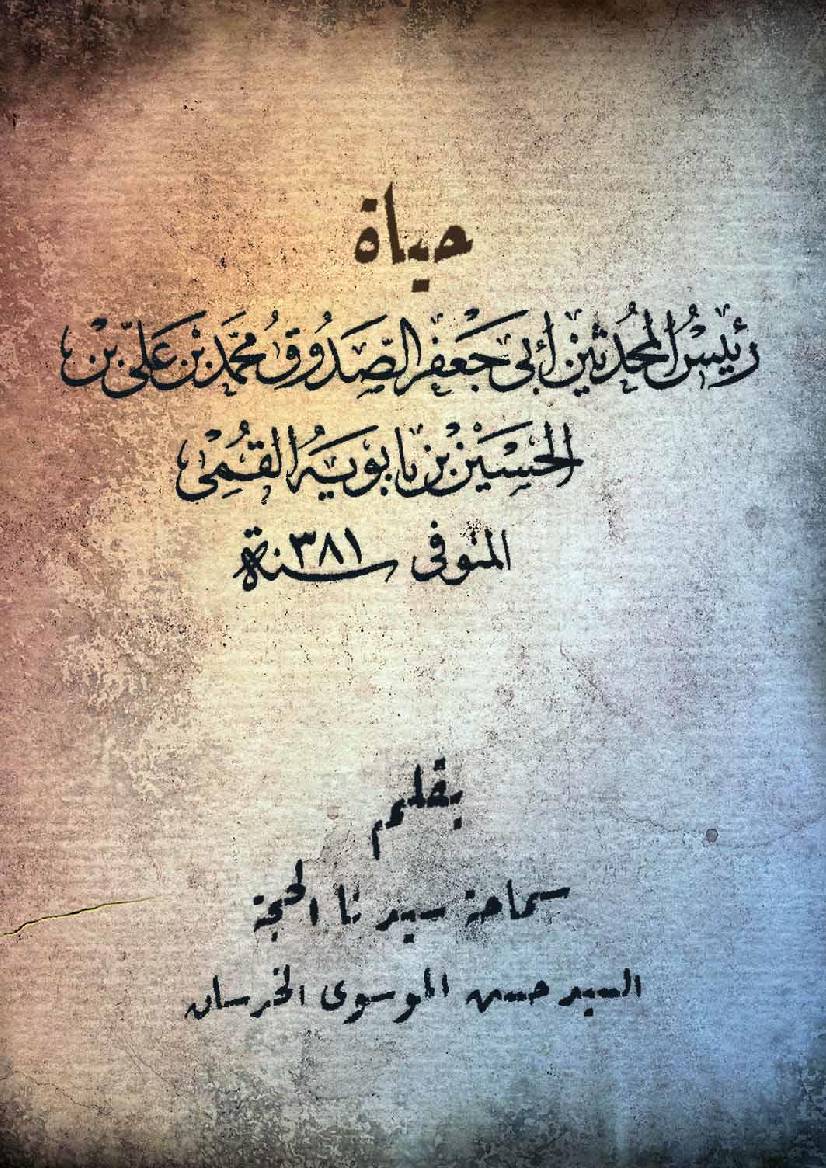 حياة
رئيسُ المحُدثين أبي جَعفر الصَّدُوق محمَّد بن عَليّ بن
الحسَين بن بابويَه القُمِى
المتوفى سنة ٣٨١
بقلم
سماحة سيدنا الحجة
السيد حسن الموسوى الخرسان